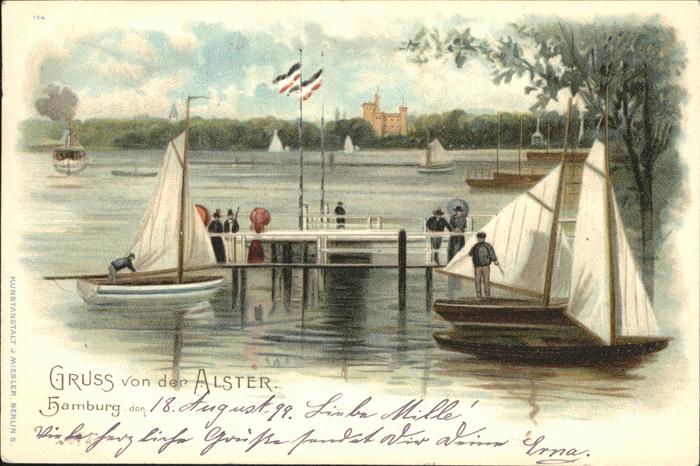 134
KUNSTANSTALT J. MIESLER. BERLIN S.
GRUSS von der ALSTER.
Hamburg, den 18. August. 99. Liebe Millé
Viele herzliche Grüße sendet Dir Deine Erna.